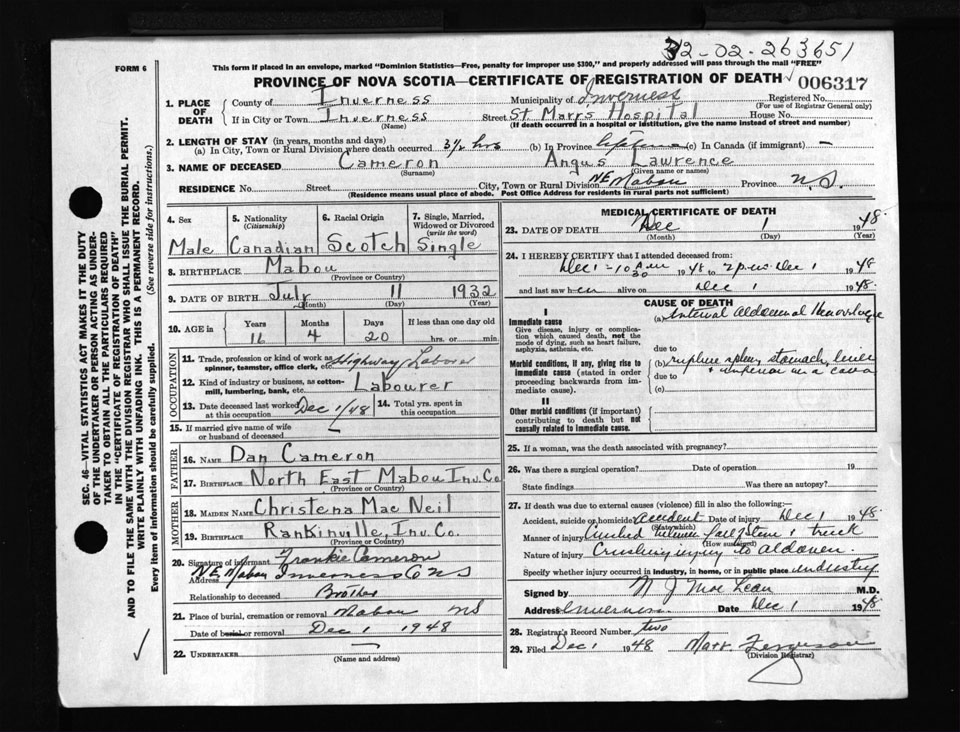 32-02-263651
FORM 6
This form if placed in an envelope, marked "Dominion Statistics—Free, penalty for improper use $300," and properly addressed will pass through the mail "FREE"
PROVINCE OF NOVA SCOTIA—CERTIFICATE OF REGISTRATION OF DEATH
006317
1. PLACE OF DEATH
County of Inverness Municipality of Inverness Registered No.
(For use of Registrar General only)
If in City or Town Inverness Street St. Marys Hospital House No.
(Name) (If death occurred in a hospital or institution, give the name instead of street and number)
2. LENGTH OF STAY (in years, months and days)
(a) In City, Town or Rural Division where death occurred 3½ hrs (b) In Province lifetime (c) In Canada (if immigrant) —
3. NAME OF DECEASED Cameron Angus Lawrence
(Surname) (Given name or names)
RESIDENCE No. Street City, Town or Rural Division NE Mabou Province N.S.
(Residence means usual place of abode. Post Office Address for residents in rural parts not sufficient)
4. Sex
Male
5. Nationality (Citizenship)
Canadian
6. Racial Origin
Scotch
7. Single, Married, Widowed or Divorced (write the word)
Single
8. BIRTHPLACE Mabou
(Province or Country)
9. DATE OF BIRTH July 11 1932
(Month) (Day) (Year)
10. AGE in
Years Months Days If less than one day old
16 4 20 hrs. or min.
OCCUPATION
11. Trade, profession or kind of work as spinner, teamster, office clerk, etc. Highway Laborer
12. Kind of industry or business, as cotton-mill, lumbering, bank, etc. Labourer
13. Date deceased last worked at this occupation Dec 1/48
14. Total yrs. spent in this occupation
15. If married give name of wife or husband of deceased
FATHER
16. Name Dan Cameron
17. Birthplace North East Mabou Inv. Co
(Province or Country)
MOTHER
18. MAIDEN NAME Christena MacNeil
19. Birthplace Rankinville, Inv. Co.
(Province or Country)
20. Signature of informant Frankie Cameron
Address NE Mabou Inverness Co NS
Relationship to deceased Brother
21. Place of burial, cremation or removal Mabou NS
Date of burial or removal Dec 1 1948
22. UNDERTAKER
(Name and address)
MEDICAL CERTIFICATE OF DEATH
23. DATE OF DEATH Dec 1 1948
(Month) (Day) (Year)
24. I HEREBY CERTIFY that I attended deceased from:
Dec 1 - 10 30 A.M. 1948 to 2 p.m. Dec 1 1948
and last saw h alive on Dec 1 1948
CAUSE OF DEATH
I
Immediate cause
Give disease, injury or complication which caused death, not the mode of dying, such as heart failure, asphyxia, asthenia, etc.
(a) Internal Abdominal Hemorrhage
due to
Morbid conditions, if any, giving rise to immediate cause (stated in order proceeding backwards from immediate cause).
(b) rupture spleen, stomach, liver & inferior vena cava
due to
(c)
II
Other morbid conditions (if important) contributing to death but not causally related to immediate cause.
25. If a woman, was the death associated with pregnancy?
26. Was there a surgical operation? Date of operation 19
State findings Was there an autopsy?
27. If death was due to external causes (violence) fill in also the following:
Accident, suicide or homicide accident Date of injury Dec 1 1948
(State which)
Manner of injury truck
(How sustained)
Nature of injury Crushing injury to abdomen.
Specify whether injury occurred in industry, in home, or in public place industry
Signed by N J MacLean M.D.
Address Inverness Date Dec 1 1948
28. Registrar's Record Number two
29. Filed Dec 1 1948 Mark Ferguson
(Division Registrar)
SEC. 46—VITAL STATISTICS ACT MAKES IT THE DUTY OF THE UNDERTAKER OR PERSON ACTING AS UNDERTAKER TO OBTAIN ALL THE PARTICULARS REQUIRED IN THE "CERTIFICATE OF REGISTRATION OF DEATH" AND TO FILE THE SAME WITH THE DIVISION REGISTRAR WHO SHALL ISSUE THE BURIAL PERMIT.
WRITE PLAINLY WITH UNFADING INK. THIS IS A PERMANENT RECORD.
Every item of Information should be carefully supplied. (See reverse side for instructions.)